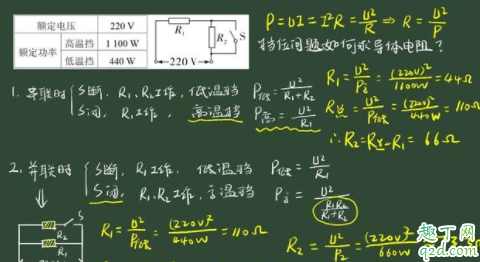 额定电压 220 V
额定功率 高温挡 1 100 W
低温挡 440 W
R₁ R₂ S
220 V
P=UI=I²R=U²/R ⇒ R=U²/P
挡位问题如何求导体电阻?
1. 串联时 { S断, R₁、R₂工作, 低温挡 P低=U²/(R₁+R₂)
S闭, R₁工作, 高温挡 P高=U²/R₁
R₁=U²/P高=(220V)²/1100W=44Ω
R总=U²/P低=(220V)²/440W=110Ω
∴R₂=R总-R₁=66Ω
2. 并联时 { S断, R₁工作, 低温挡 P低=U²/R₁
S闭, R₁、R₂工作, 高温挡 P高=U²/(R₁R₂/(R₁+R₂))
S
R₂
R₁
R₁=U²/P低=(220V)²/440W=110Ω
R₂=U²/P₂=(220V)²/660W
趣丁网